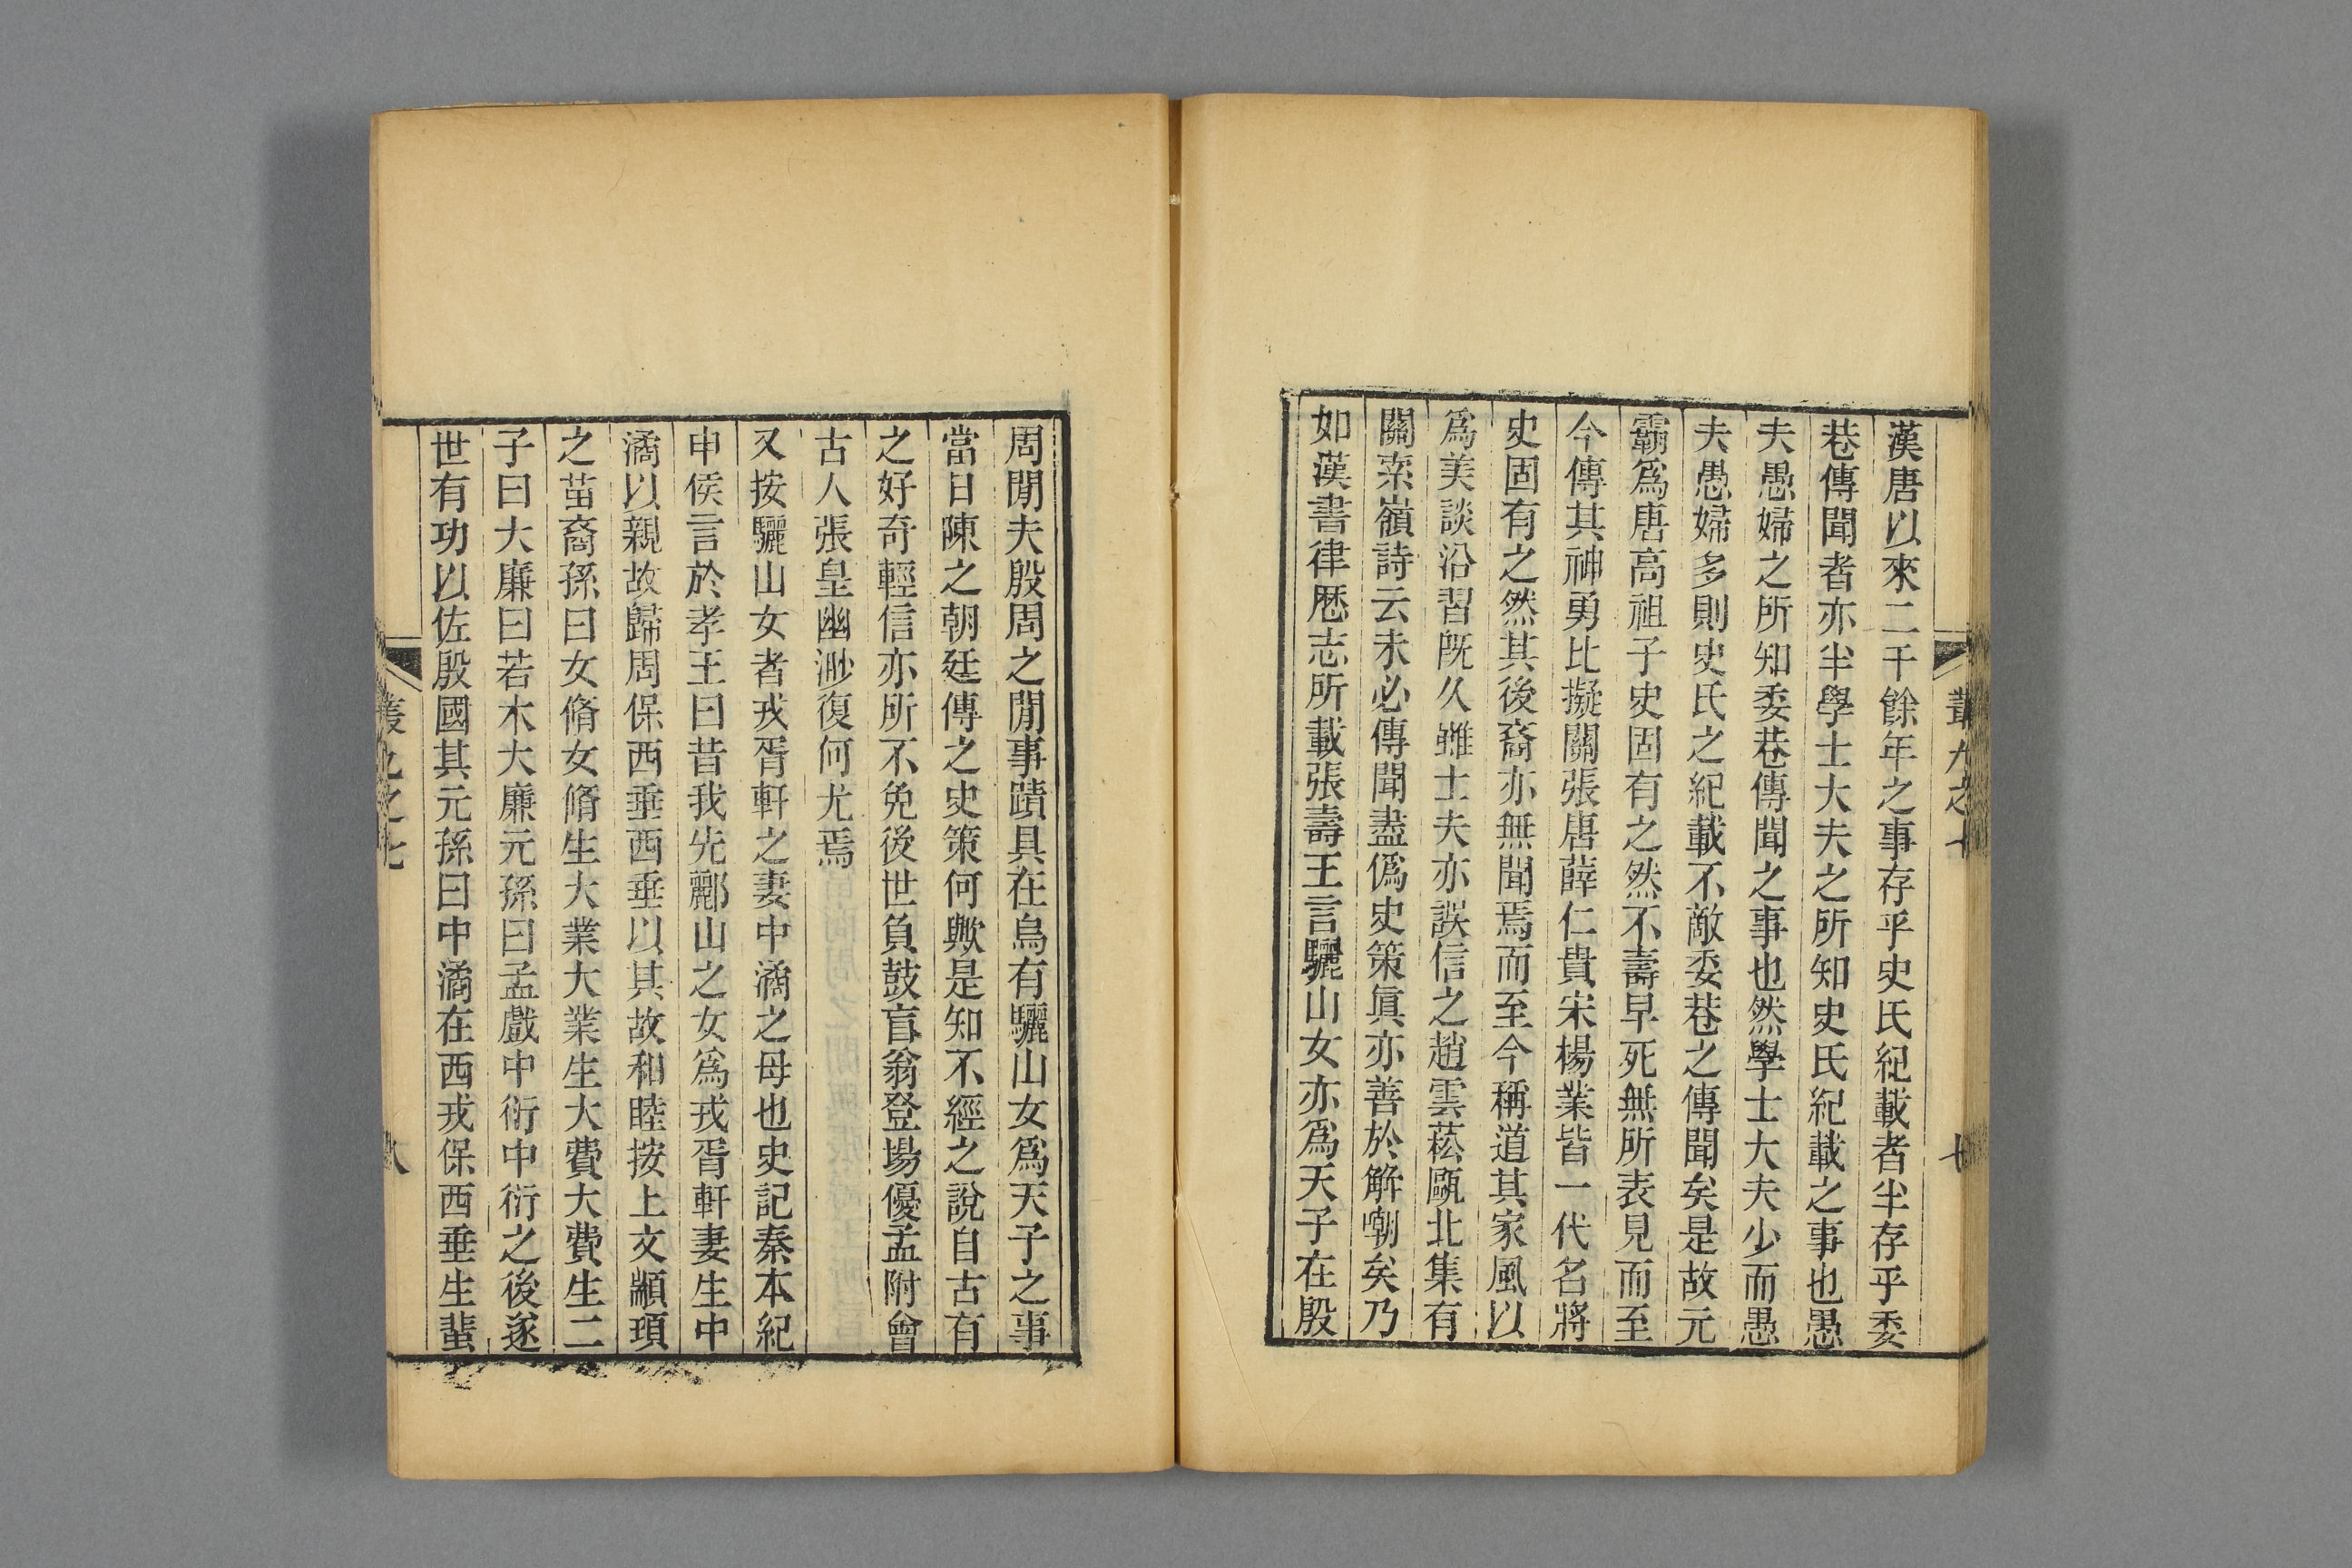 漢唐以來二千餘年之事存乎史氏紀載者半存乎委
巷傳聞者亦半學士大夫之所知史氏紀載之事也愚
夫愚婦之所知委巷傳聞之事也然學士大夫少而愚
夫愚婦多則史氏之紀載不敵委巷之傳聞矣是故元
霸爲唐高祖子史固有之然不壽早死無所表見而至
今傳其神勇比擬關張唐薛仁貴宋楊業皆一代名將
史固有之然其後裔亦無聞焉而至今稱道其家風以
爲美談沿習旣久雖士夫亦誤信之趙雲菘甌北集有
關索嶺詩云未必傳聞盡僞史策眞亦善於解嘲矣乃
如漢書律厯志所載張壽王言驪山女亦爲天子在殷
周閒夫殷周之閒事蹟具在烏有驪山女爲天子之事
當日陳之朝廷傳之史策何歟是知不經之說自古有
之好奇輕信亦所不免後世負鼓盲翁登場優孟附會
古人張皇幽渺復何尤焉
又按驪山女者戎胥軒之妻中潏之母也史記秦本紀
申侯言於孝王曰昔我先酈山之女爲戎胥軒妻生中
潏以親故歸周保西垂西垂以其故和睦按上文顓頊
之苗裔孫曰女脩女脩生大業大業生大費大費生二
子曰大廉曰若木大廉元孫曰孟戲中衍中衍之後遂
世有功以佐殷國其元孫曰中潏在西戎保西垂生蜚
叢九之七
八